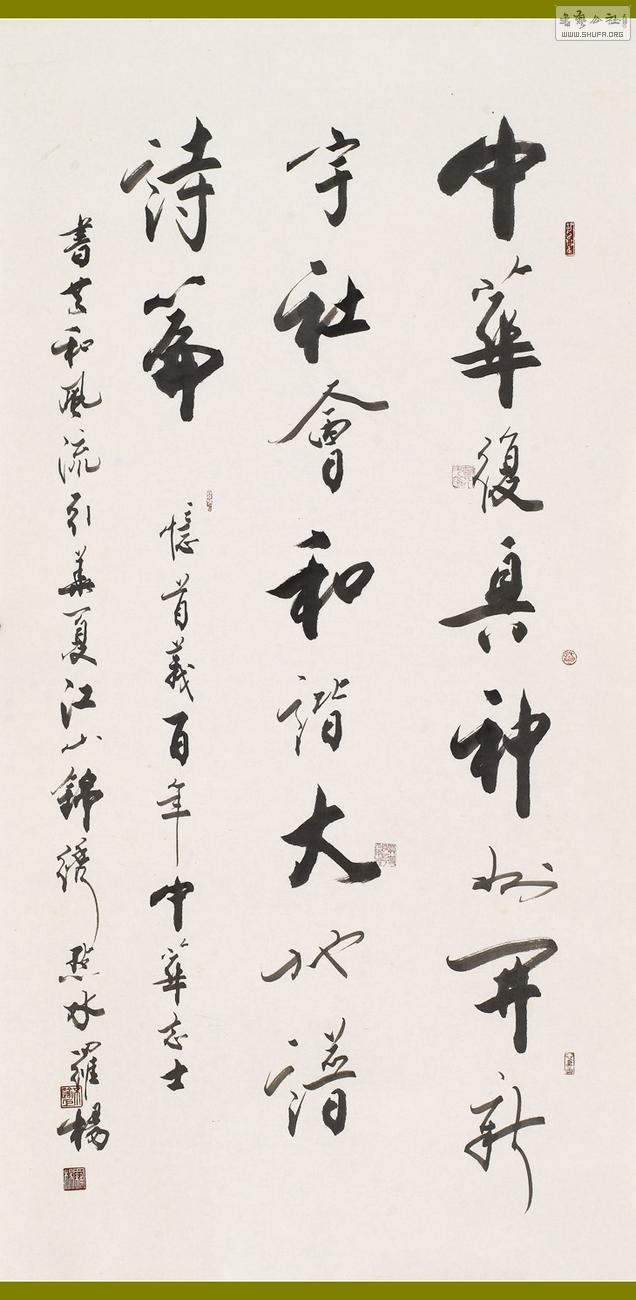 中華復興神州開新
宇社會和諧大地譜
詩篇
憶首義百年中華志士
書共和風流引華夏江山錦綉 點水羅楊
WWW.SHUFA.ORG